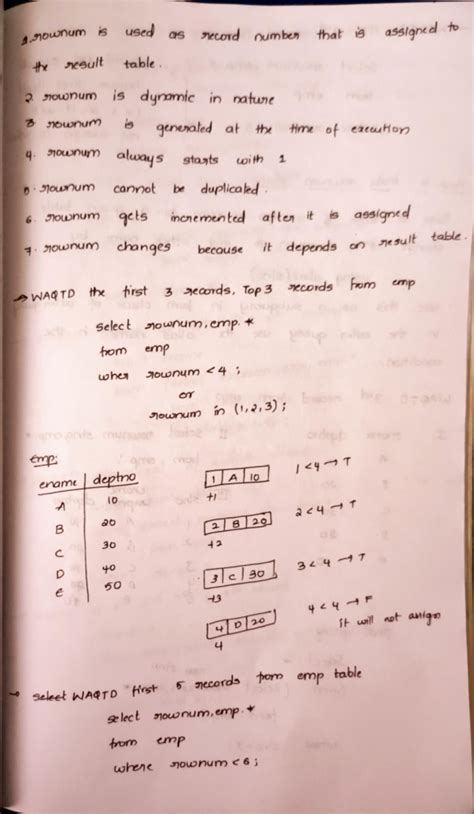 1. rownum is used as record number that is assigned to
the result table.
2. rownum is dynamic in nature
3 rownum is generated at the time of execution
4. rownum always starts with 1
5. rownum cannot be duplicated.
6. rownum gets incremented after it is assigned
7. rownum changes because it depends on result table.
→ WAQTD the first 3 records, Top 3 records from emp
select rownum, emp.*
from emp
wher rownum < 4 ;
or
rownum in (1,2,3);
emp:
ename | deptno
A 10
B 20
C 30
D 40
E 50
1 | A | 10 1<4 → T
+1
2 | B | 20 2<4 → T
+2
3 | C | 30 3<4 → T
+3
4 | D | 20 4<4 → F
4 it will not assign
→ select WAQTD first 5 records from emp table
select rownum, emp.*
from emp
where rownum < 6 ;